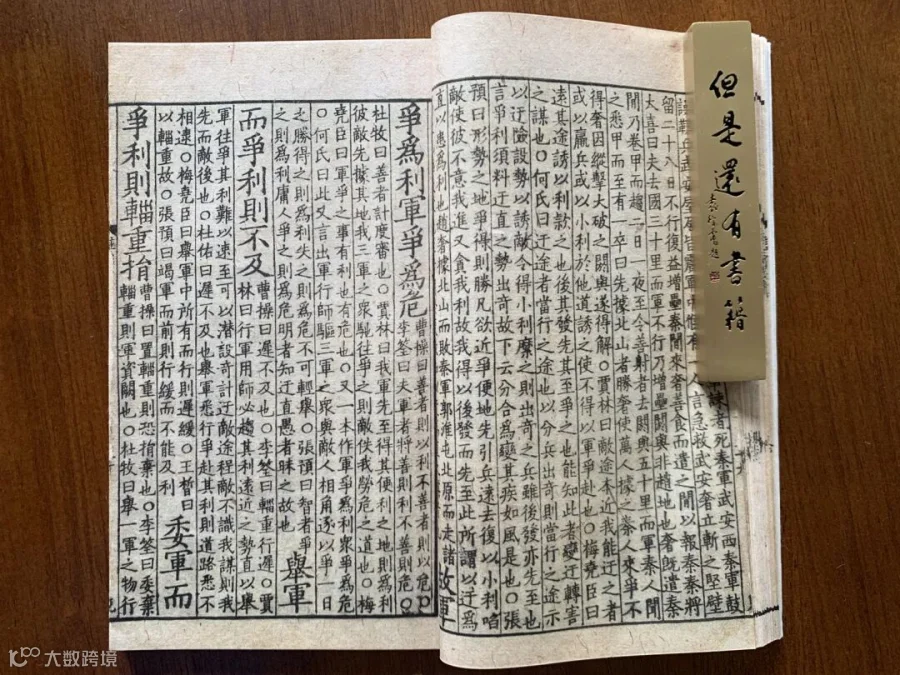 但是還有書籍
諫者死秦軍武安西秦軍鼓
人言急救武安奢立斬之堅壁
留二十八日不行復益增壘秦間來奢善食而遣之間以報秦將
大喜曰夫去國三十里而軍不行乃增壘閼與非趙地也奢既遣秦
間乃卷甲而趨二日一夜至令善射者去閼與五十里而軍秦人聞
之悉甲而至有一卒曰先據北山者勝奢使萬人據之秦人來爭不
得奢因縱擊大破之閼與遂得解○賈林曰敵途本近我能迂之者
或以羸兵或以小利於他道誘之使不得以軍爭赴也○梅堯臣曰
遠其途誘以利款之也後其發先其至爭之也能知此者變迂轉害
之謀也○何氏曰迂途者當行之途也以分兵出奇則當行之途示
以迂險設勢以誘敵令得小利縻之則出奇之兵雖後發亦先至也
言爭利須料迂直之勢出奇故下云分合爲變其疾如風是也○張
預曰形勢之地爭得則勝凡欲近爭便地先引兵遠去後以小利啗
敵使彼不意我進又貪我利故我得以後發而先至此所謂以迂爲
直以患爲利也趙奢據北山而敗秦軍郭淮屯北原而走諸 故軍
爭爲利軍爭爲危
曹操曰善者則以利不善者則以危○
李筌曰夫軍者將善則利不善則危○
杜牧曰善者計度審也○賈林曰我軍先至得其便利之地則爲利
彼敵先據其地我三軍之衆馳往爭之則敵佚我勞危之道也○梅
堯臣曰軍爭之事有利也有危也○又一本作軍爭爲利衆爭爲危
○何氏曰此又言出軍行師驅三軍之衆與敵人相角逐以爭一日
之勝得之則爲利失之則爲危不可輕舉○張預曰智者爭
之則爲利庸人爭之則爲危明者知迂直愚者昧之故也
舉軍
而爭利則不及
曹操曰遲不及也○李筌曰輜重行遲○賈
林曰行軍用師必趨其利遠近之勢直以舉
軍往爭其利難以速至可以潛設奇計迂敵途程敵不識我謀則我
先而敵後也○杜佑曰遲不及也舉軍悉行爭赴其利則道路悉不
相逮○梅堯臣曰舉軍中所有而行則遲緩○王晳曰
以輜重故○張預曰竭軍而前則行緩而不能及利
委軍而
爭利則輜重捐
曹操曰置輜重則恐捐棄也○李筌曰委棄
輜重則軍資闕也○杜牧曰舉一軍之物行
大数跨境